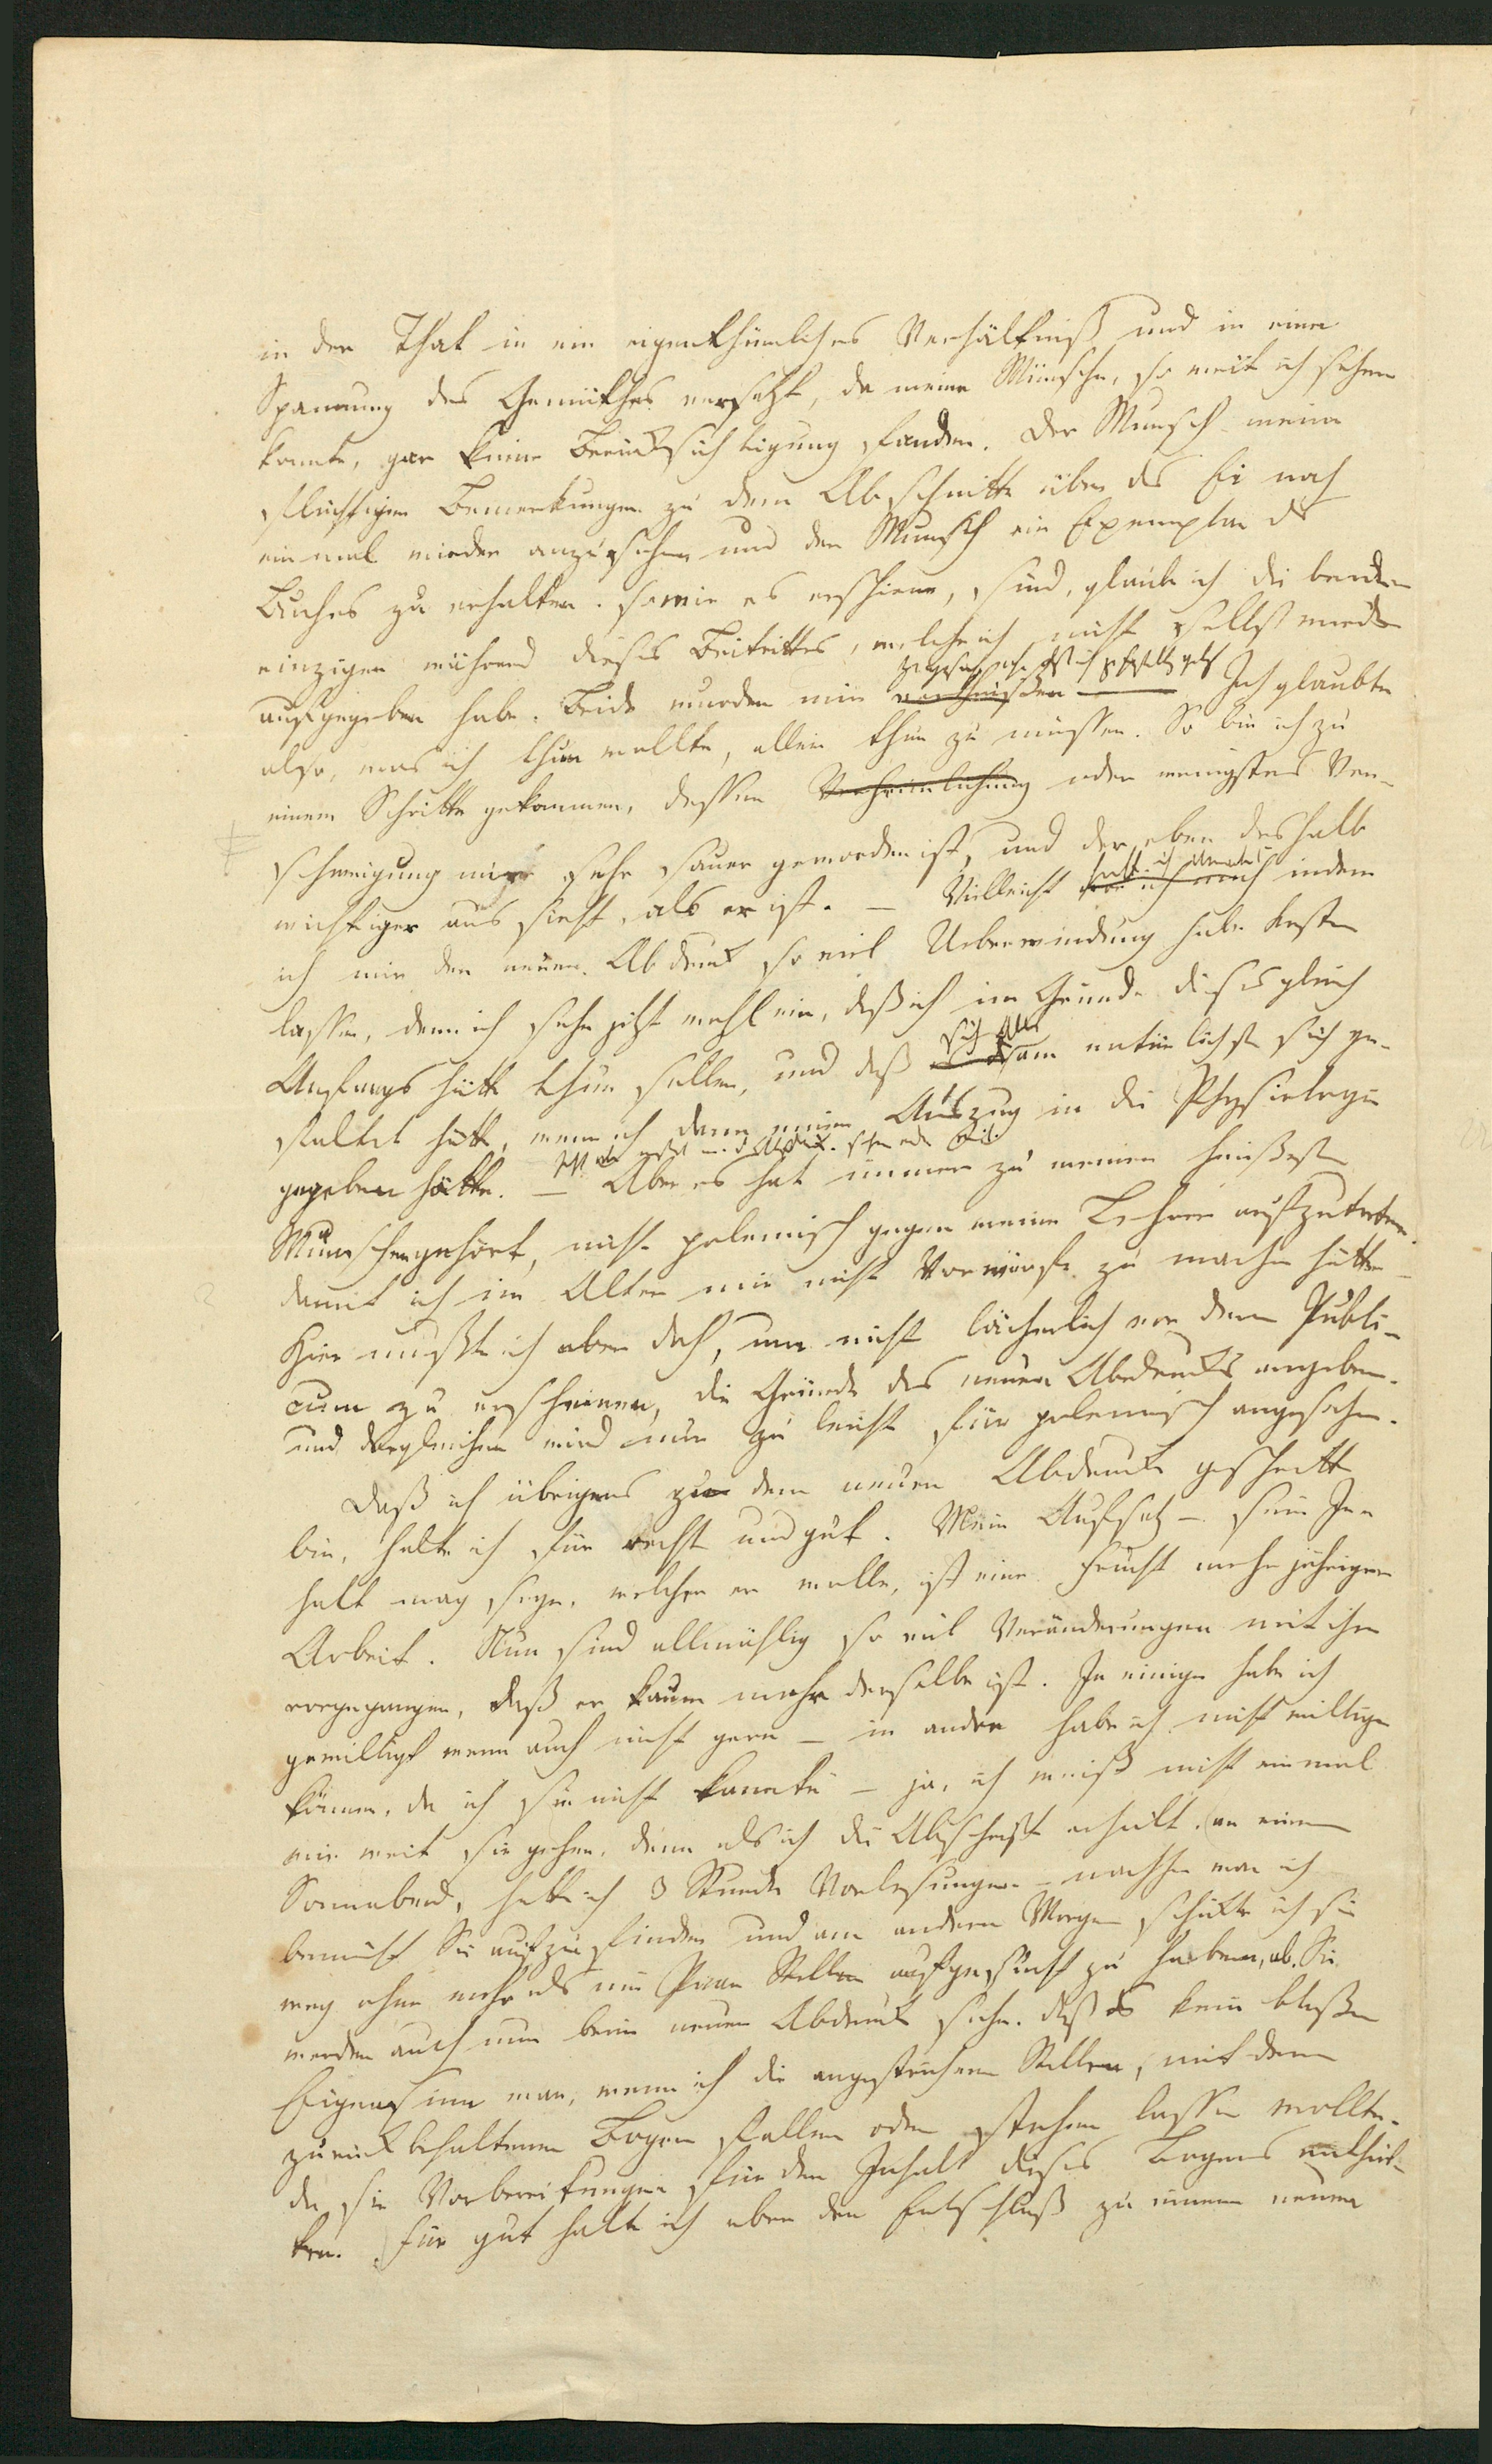 in der That in ein eigenthümliches Verhältniß und in eine
Spannung des Gemüthes versetzt, da meine Wünsche, so weit ich sehen
konnte, gar keine Berücksichtigung fanden. Der Wunsch meine
flüchtigen Bemerkungen zu dem Abschnitte über das Ei noch
ein mal wieder anzusehen und der Wunsch ein Exemplar des
Buches zu erhalten, sowie es erschiene, sind, glaube ich die beiden
einzigen während dieses Beitrittes, welche ich nicht selbst wieder
aufgegeben habe. Beide wurden mir Ich glaubte
also, was ich thun wollte, allein thun zu müssen. So bin ich zu
einem Schritte gekommen, dessen Verheimlichung oder wenigstens Ver-
schweigung mir sehr sauer geworden ist, und der eben deshalb
wichtiger aus sieht, als er ist. — Vielleicht indem
ich mir den neuen Abdruck so viel Ueberwindung habe kosten
lassen, denn ich sehe jetzt wohl ein, daß ich im Grunde dieses gleich
Anfangs hätte thun sollen, und daß sich Alles am natürlichsten sich ge-
staltet hätte, wenn ich dann einen Auszug in die Physiologie
gegeben hätte. — Aber es hat immer zu meinen heißesten
Wünschen gehört, nicht polemisch gegen meine Lehrer aufzutreten
damit ich im Alter mir nicht Vorwürfe zu machen hätte
Hier mußte ich aber doch, um nicht lächerlich vor dem Publi-
cum zu erscheinen, die Gründe des neuen Abdrucks angeben.
und dergleichen wird nur zu leicht für polemisch angesehen.
Daß ich übrigens zu dem neuen Abdrucke geschritten
bin, halte ich für recht und gut. Mein Aufsatz — sein In-
halt mag seyn, welcher er wolle, ist eine Frucht mehrjähriger
Arbeit. Nun sind allmählig so viel Veränderungen mit ihm
vorgegangen, daß er kaum mehr derselbe ist. In einige habe ich
gewilligt wenn auch nicht gern — in andre habe ich nicht willigen
können, da ich sie nicht kannte — ja, ich weiß nicht einmal
wie weit sie gehen, denn als ich die Abschrift erhielt, an einem
Sonnabend, hatte ich 3 Stunden Vorlesungen — nachher war ich
bemüht Sie aufzufinden und am andern Morgen schickte ich sie
weg ohne mehr als ein Paar Stellen aufgesucht zu haben, ob. Sie
werden auch nun beim neuen Abdruck sehen, daß es kein bloßer
Eigensinn war, wenn ich die angestrichenen Stellen, mit dem
zurückbehaltenen Bogen fallen oder stehen lassen wollte.
da sie Vorbereitungen für den Inhalt dieses Bogens enthiel-
ten. Für gut halte ich aber den Entschluß zu einem neuen